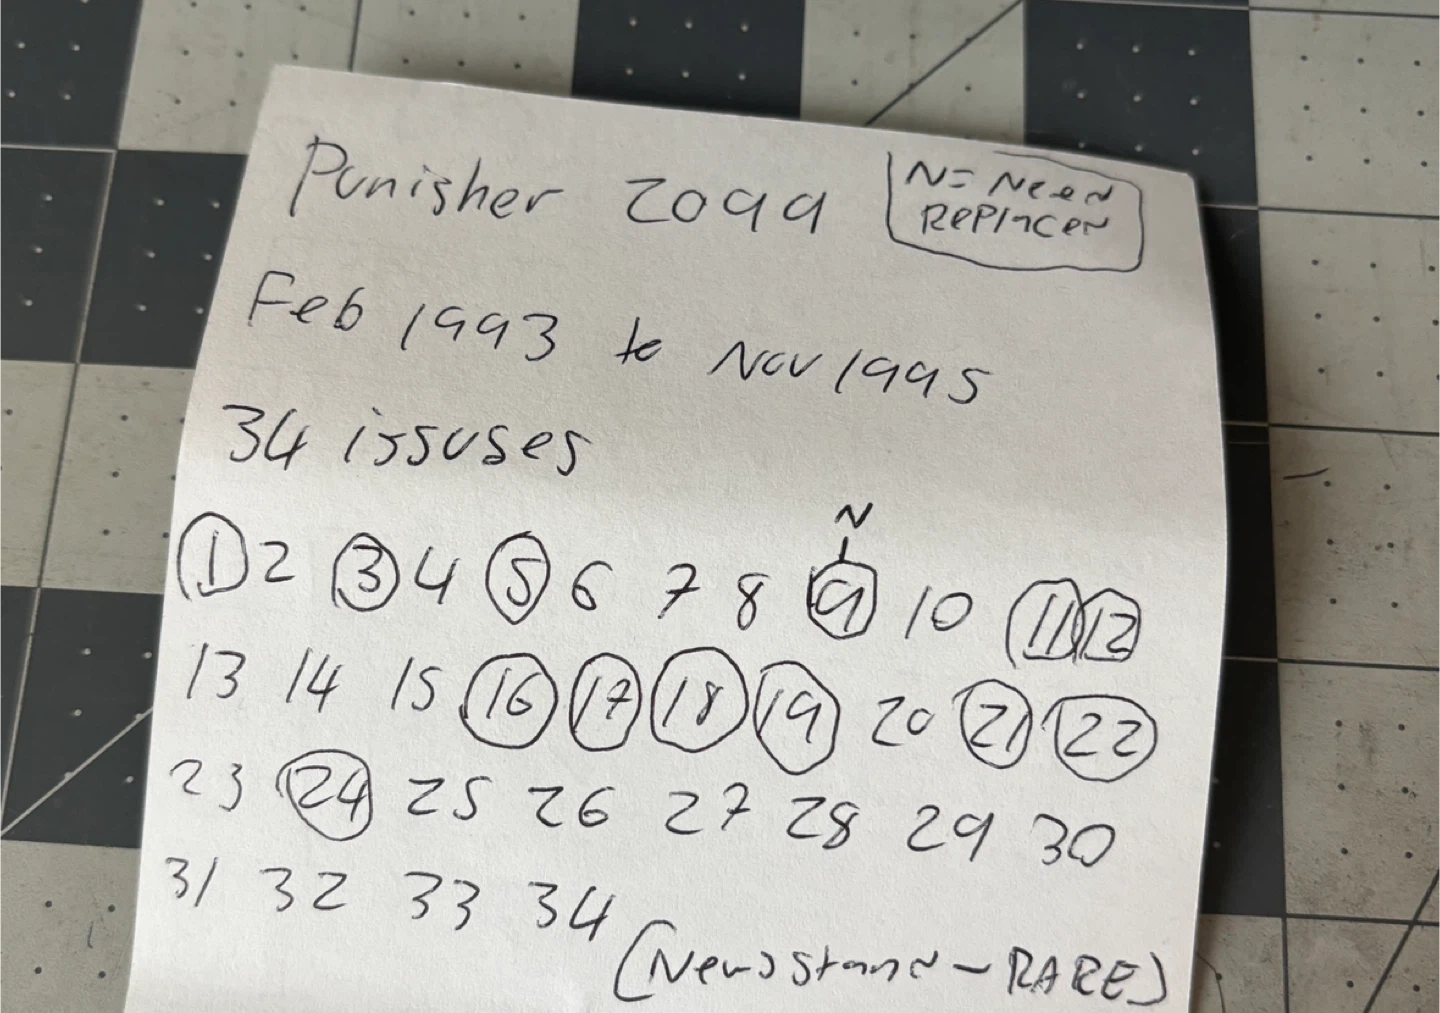 Punisher 2099
N= Need
Replaced
Feb 1993 to Nov 1995
34 issuses
N
1 2 3 4 5 6 7 8 9 10 11 12
13 14 15 16 17 18 19 20 21 22
23 24 25 26 27 28 29 30
31 32 33 34
(Newsstand - RARE)